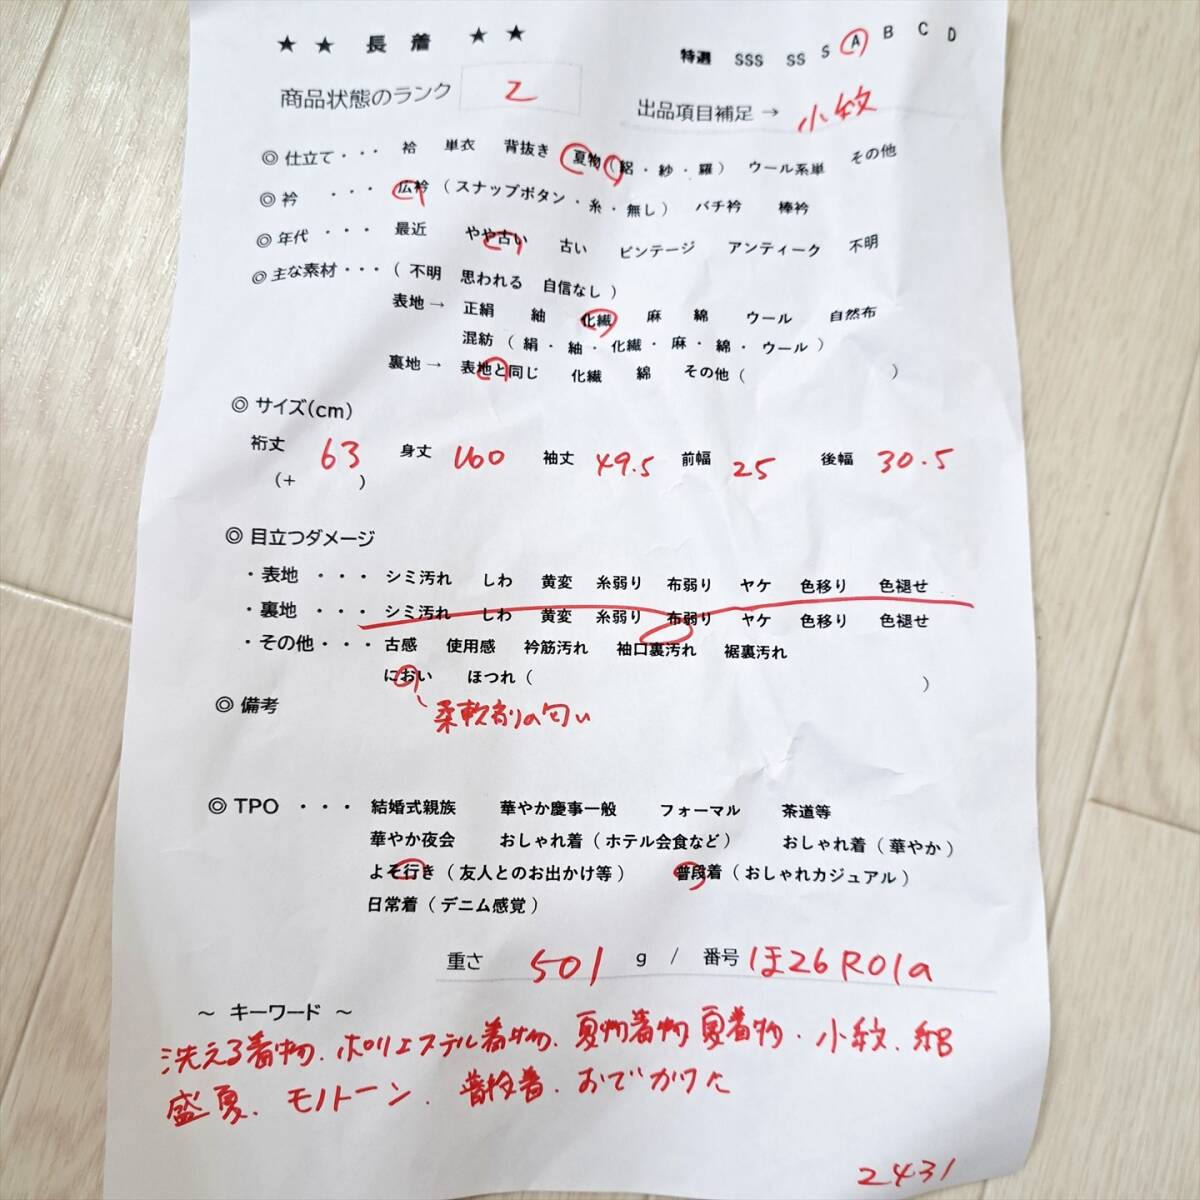 ★ ★ 長 着 ★ ★
特選 SSS SS S A B C D
商品状態のランク 2
出品項目補足 → 小紋
◎ 仕立て・・・ 袷 単衣 背抜き 夏物(絽・紗・羅) ウール系単 その他
◎ 衿 ・・・ 広衿 (スナップボタン・糸・無し) バチ衿 棒衿
◎ 年代 ・・・ 最近 やや古い 古い ビンテージ アンティーク 不明
◎ 主な素材・・・ (不明 思われる 自信なし)
表地→ 正絹 紬 化繊 麻 綿 ウール 自然布
混紡 (絹・紬・化繊・麻・綿・ウール)
裏地→ 表地と同じ 化繊 綿 その他( )
◎ サイズ(cm)
裄丈 63 身丈 160 袖丈 49.5 前幅 25 後幅 30.5
(+ )
◎ 目立つダメージ
・表地 ・・・ シミ汚れ しわ 黄変 糸弱り 布弱り ヤケ 色移り 色褪せ
・裏地 ・・・ シミ汚れ しわ 黄変 糸弱り 布弱り ヤケ 色移り 色褪せ
・その他・・・ 古感 使用感 衿筋汚れ 袖口裏汚れ 裾裏汚れ
におい ほつれ( )
◎ 備考 柔軟剤の匂い
◎ TPO ・・・ 結婚式親族 華やか慶事一般 フォーマル 茶道等
華やか夜会 おしゃれ着(ホテル会食など) おしゃれ着(華やか)
よそ行き(友人とのお出かけ等) 普段着(おしゃれカジュアル)
日常着(デニム感覚)
重さ 501 g / 番号 ほ26R01a
～ キーワード ～
洗える着物、ポリエステル着物、夏物着物 夏着物、小紋、絽
盛夏、モノトーン、普段着、おでかけ
2431